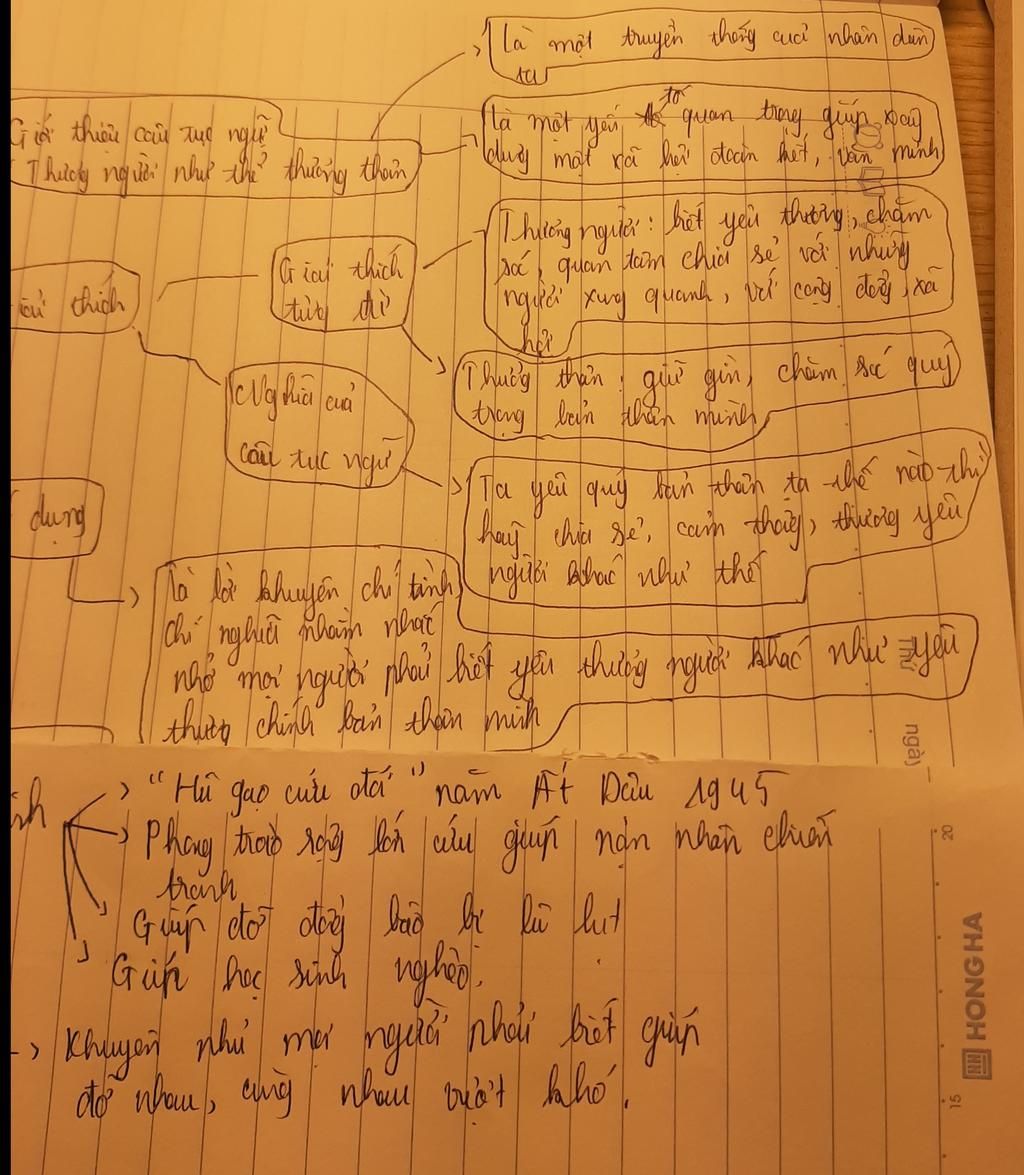 Là một truyền thống của nhân dân
ta
Giới thiệu câu tục ngữ
Thương người như thể thương thân
tố
Là một yếu quan trọng giúp xây
dựng một xã hội đoàn kết, văn minh
Thương người: biết yêu thương, chăm
sóc, quan tâm chia sẻ với những
người xung quanh, với cộng đồng, xã
hội
Giải thích
từng từ
iải thích
Thương thân: giữ gìn, chăm sóc quý
trọng bản thân mình
Nghĩa của
câu tục ngữ
Ta yêu quý bản thân ta thế nào thì
hãy chia sẻ, cảm thông, thương yêu
người khác như thế
dụng
Là lời khuyên chí tình
chí nghĩa nhằm nhắc
nhở mọi người phải biết yêu thương người khác như yêu
thương chính bản thân mình
Thứ
ngày
nh
"Hũ gạo cứu đói" năm Ất Dậu 1945
Phong trào rộng lớn cứu giúp nạn nhân chiến
tranh
Giúp đỡ đồng bào bị lũ lụt
Giúp học sinh nghèo.
-> Khuyên nhủ mọi người phải biết giúp
đỡ nhau, cùng nhau vượt khó.
20
HONG HA
15